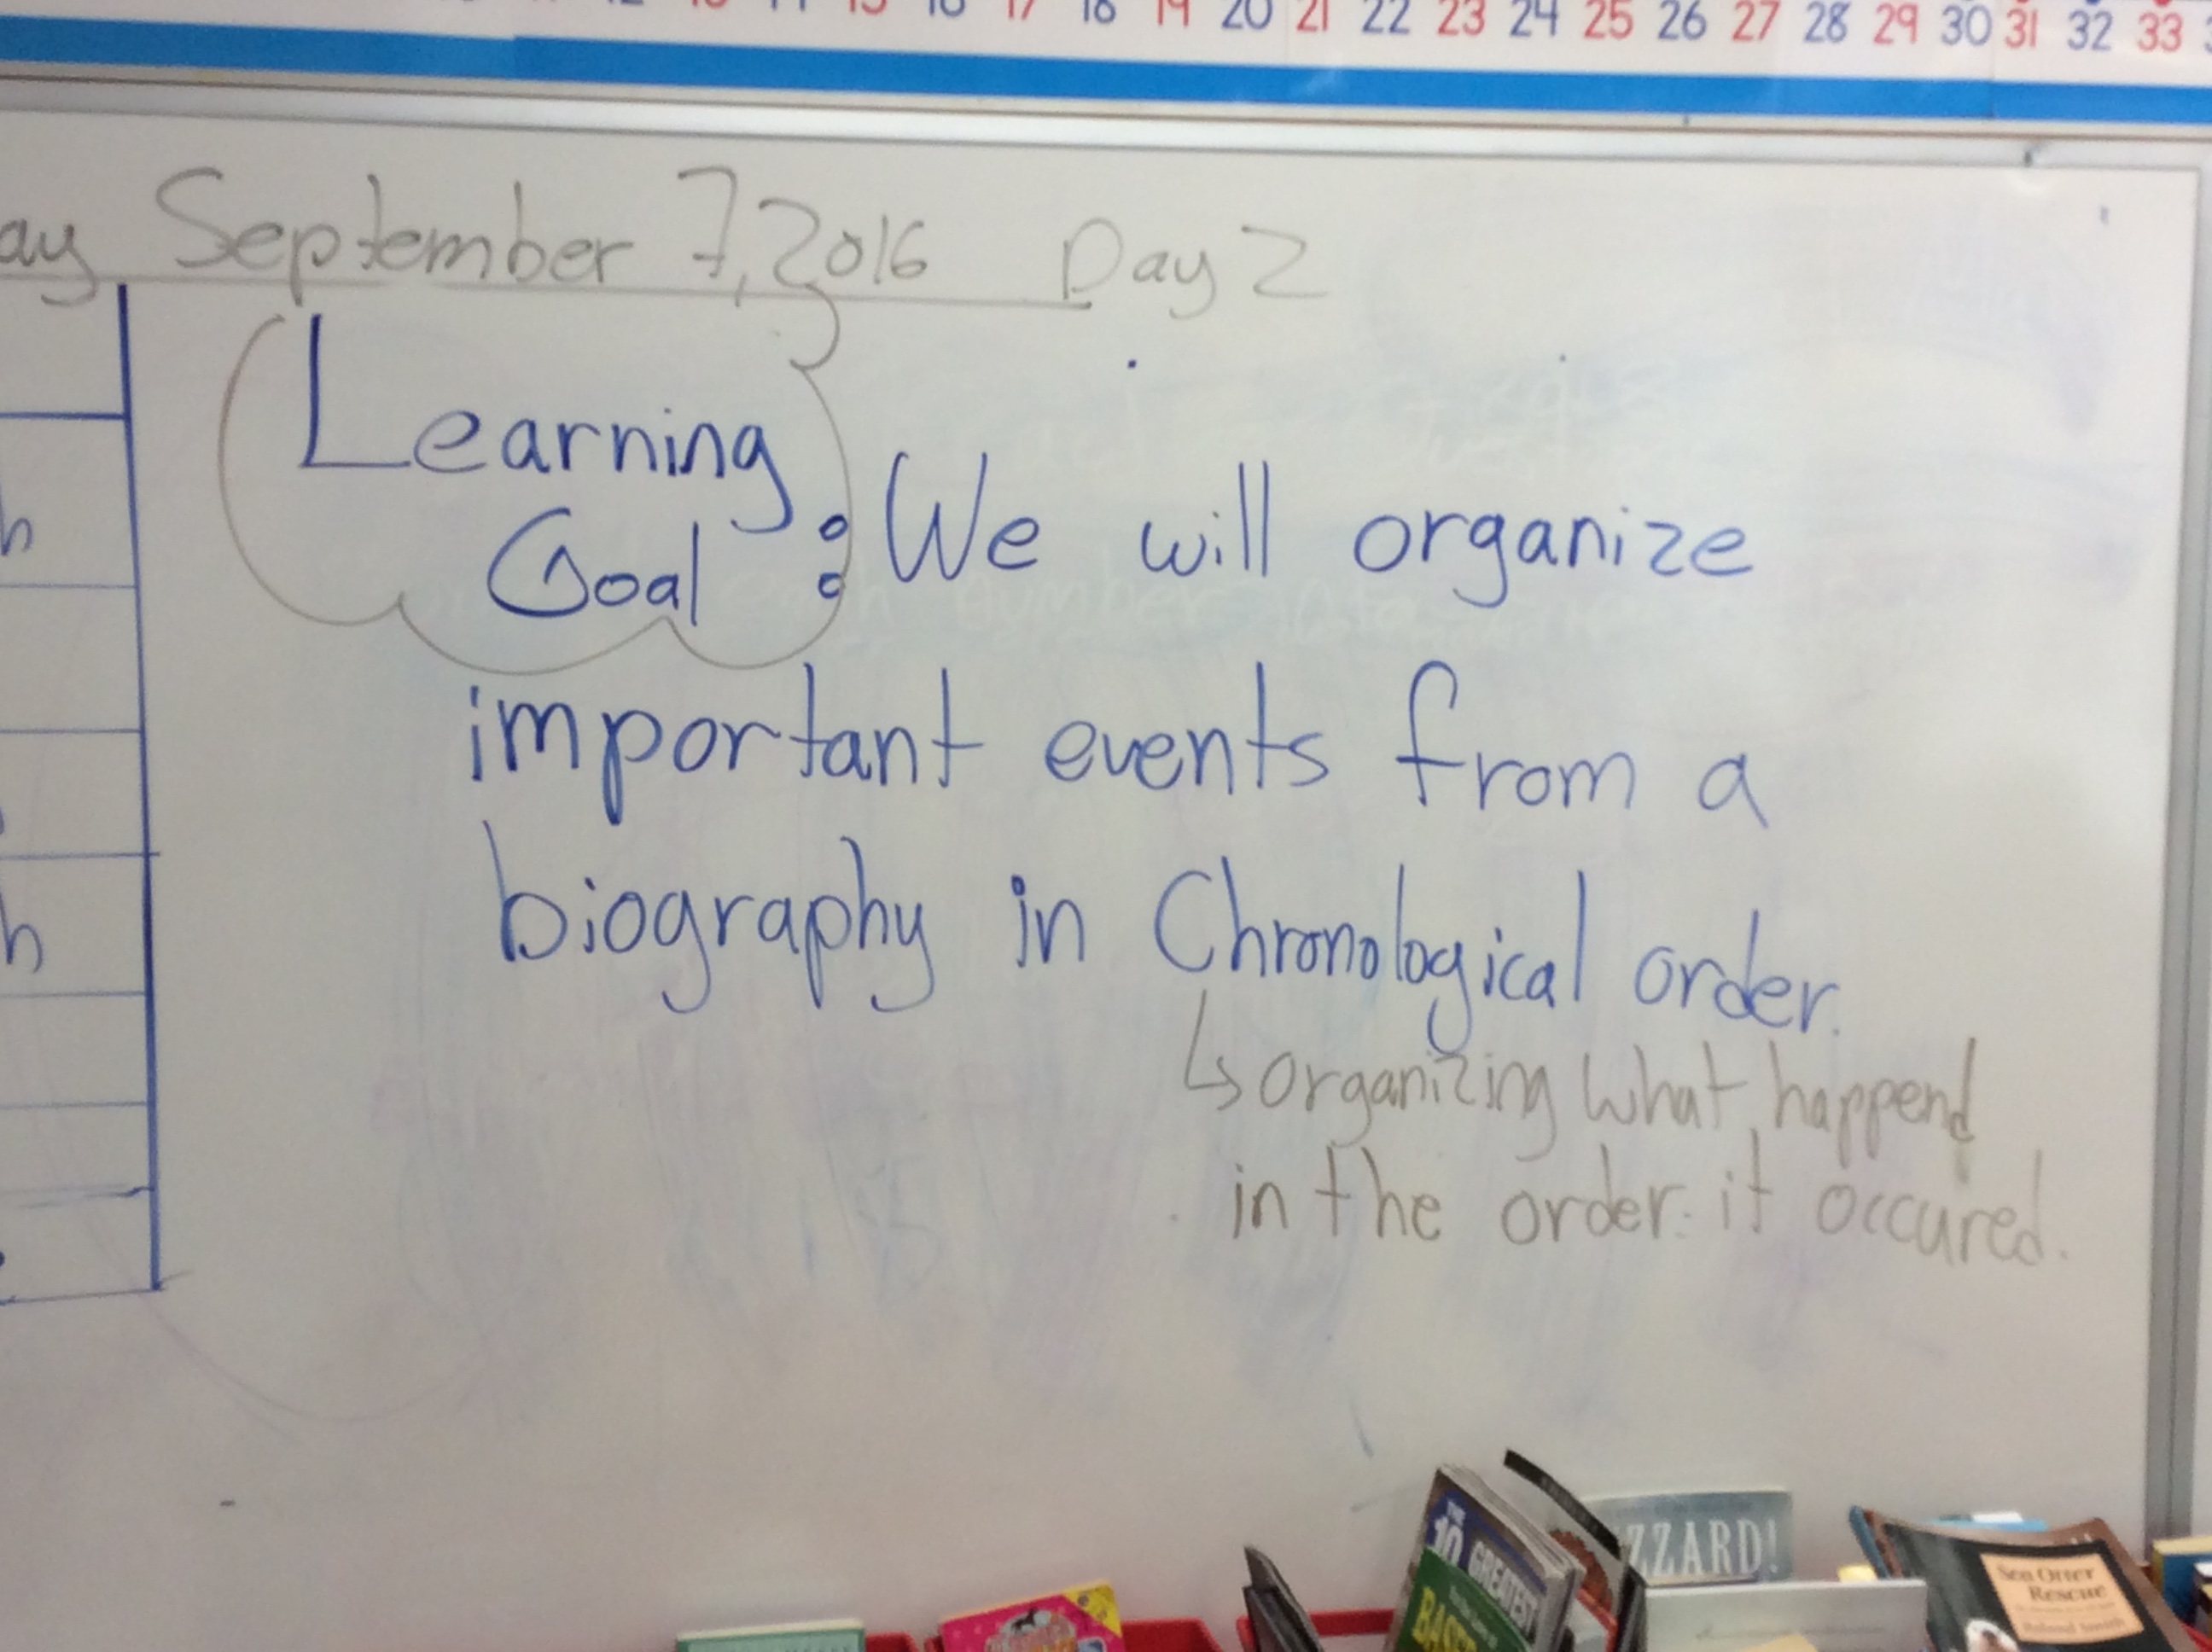 18 19 20 21 22 23 24 25 26 27 28 29 30 31 32 33
ay September 7, 2016 Day 2
Learning
Goal : We will organize
important events from a
biography in Chronological order.
↳ organizing what happend
in the order it occured.
h
h
THE
10 GREATEST
ZZARD!
Sea Otter
Rescue